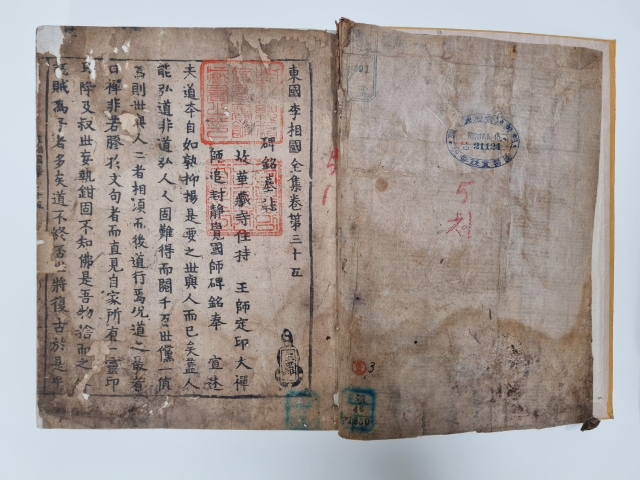 東國李相國全集卷第三十五
碑銘墓誌
故華藏寺住持 王師定印大禪
師追封靜覺國師碑銘奉 宣述
夫道本自如孰抑揚是要之世與人而已矣盖人
能弘道非道弘人人固難得而間千百世僅一値
焉則世與人二者相須而後道行焉况道之最者
曰禪非若膠於文句者而直見自家所有一靈印
降及叔世妄執鉗固不知佛是吾物捨而之
賊爲子者多矣道不終否必將復古於是
21121
5책
3
46